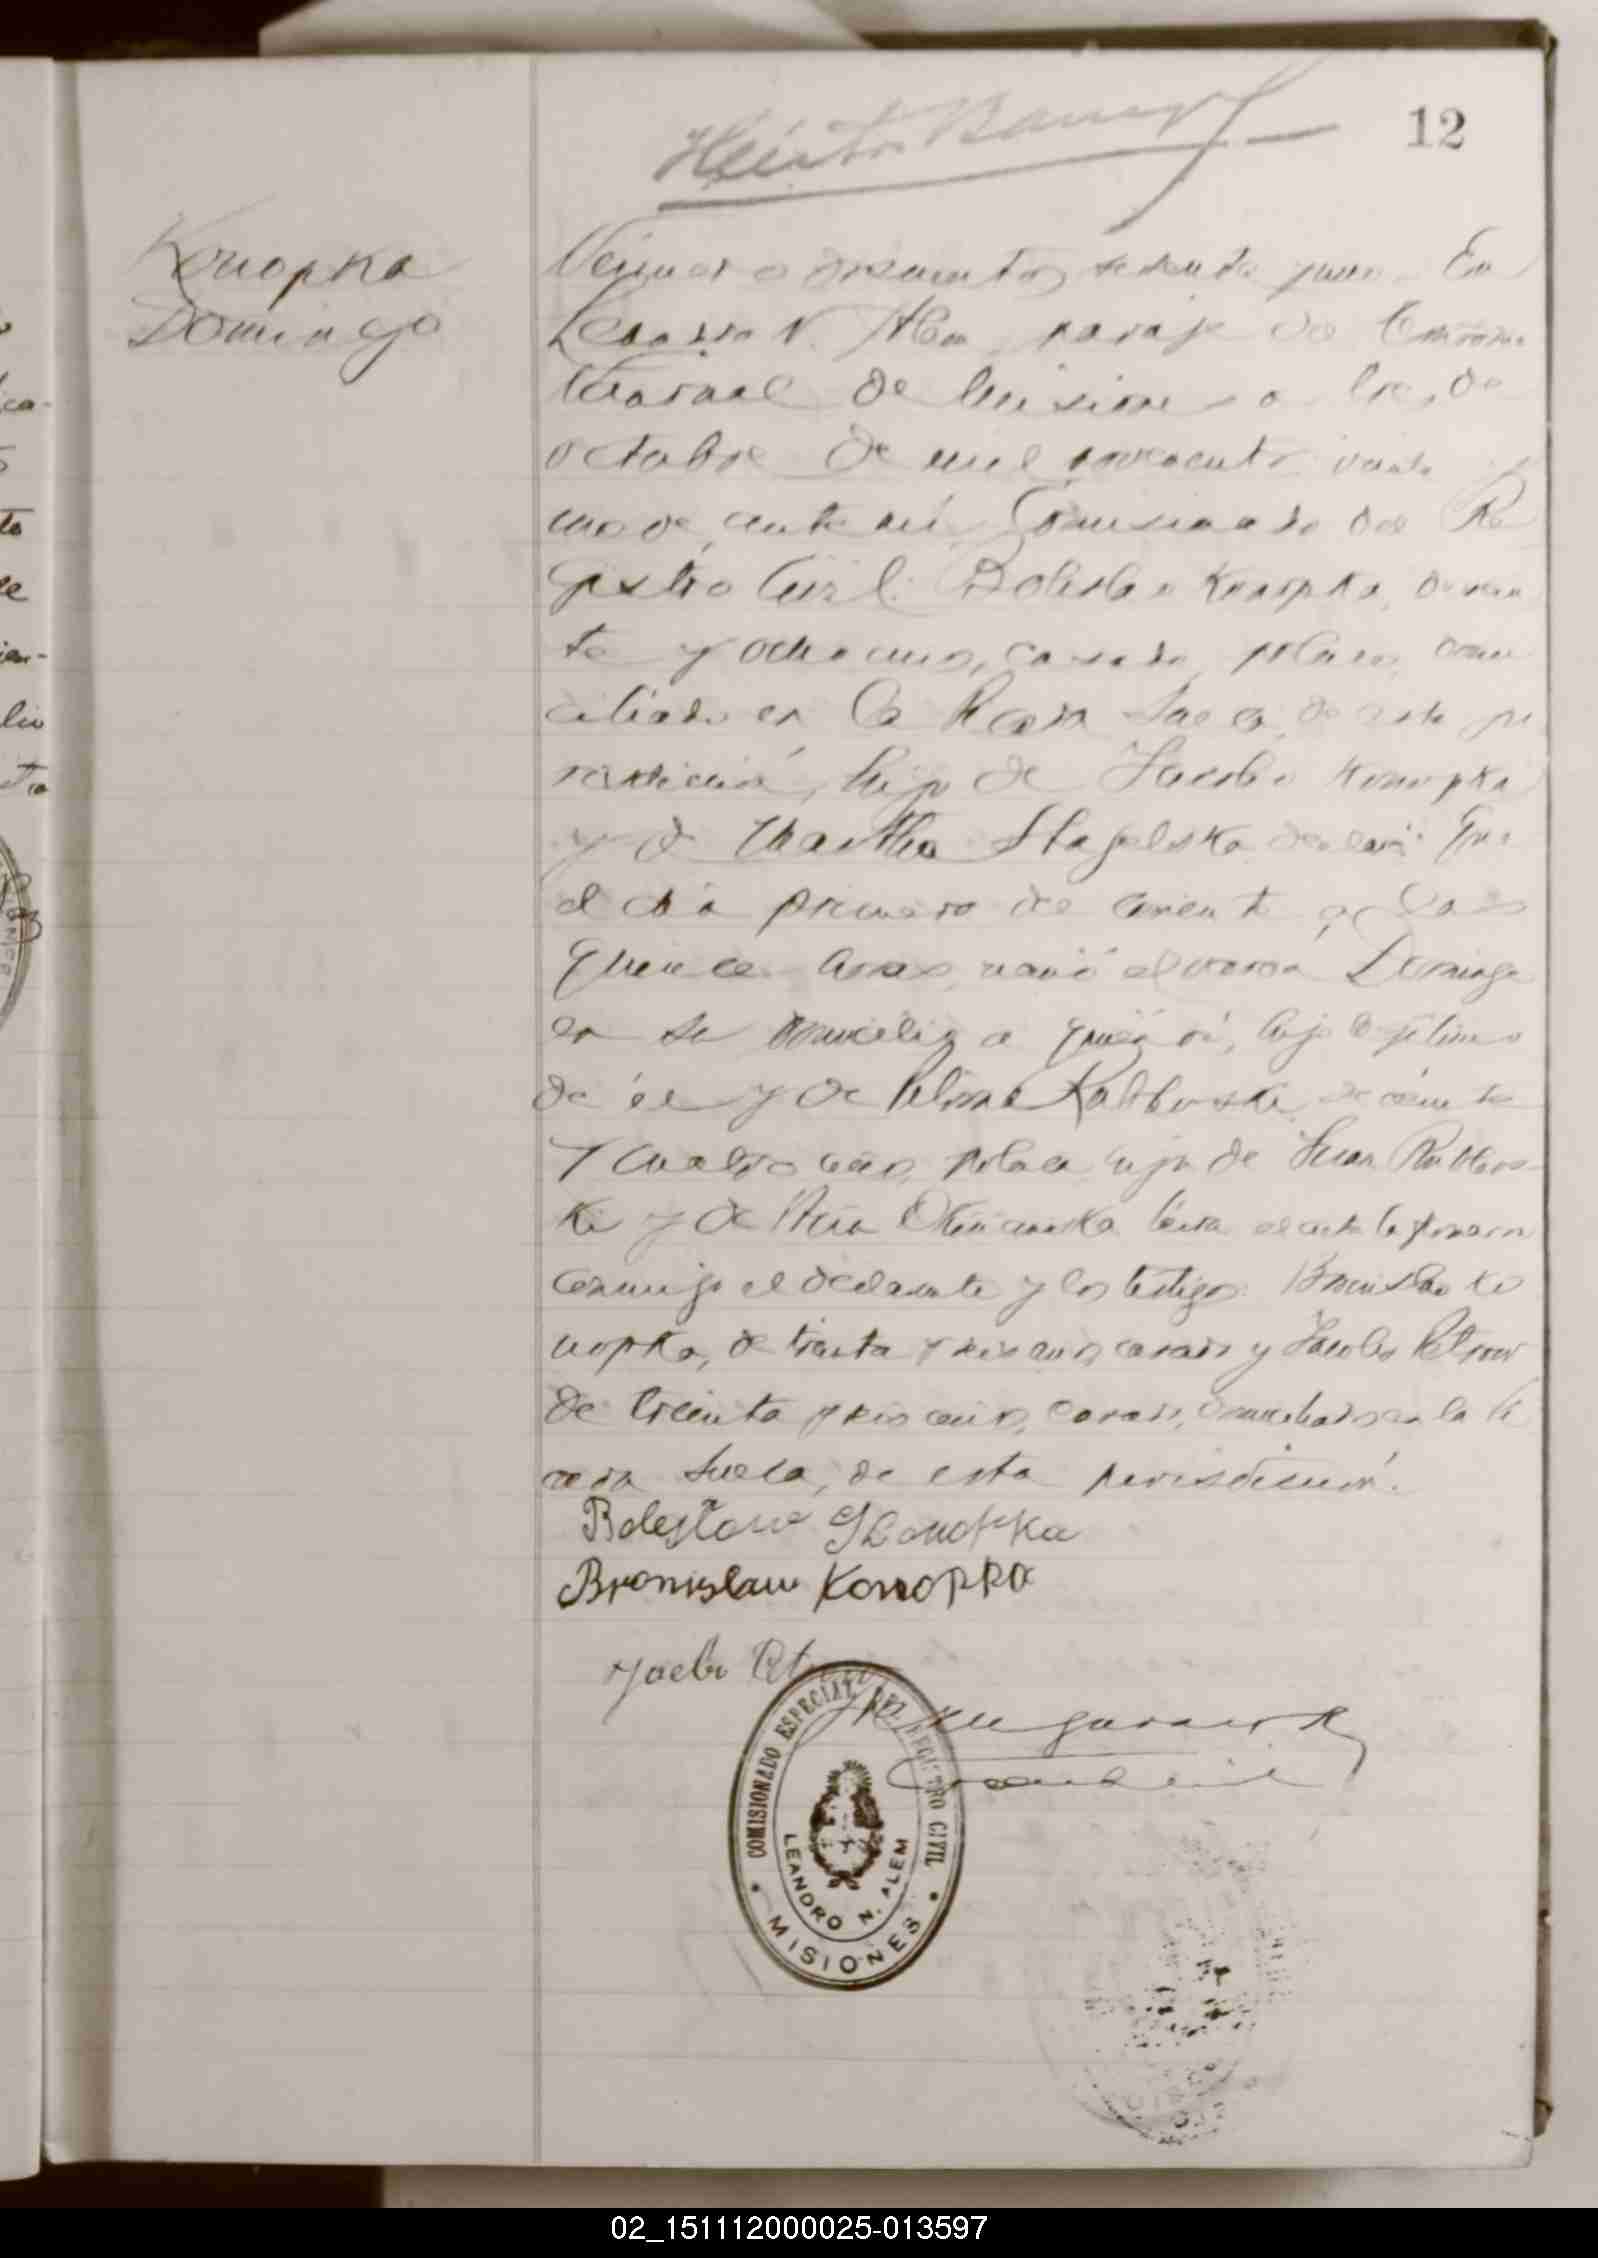 12
Konopka
Domingo
Número trescientos sesenta y uno. En
Leandro N. Alem, paraje de
de Misiones a tres de
octubre de mil novecientos veinte
uno de, ante mí Comisionado del Re
gistro Civil: Boleslao Konopka, de vein
te y ocho años, casado, polaco, domi
ciliado en la Picada Sueca, de esta ju
risdicción, hijo de Jacobo Konopka
y de Martha declaró: Que
el día primero del corriente, a las
quince horas, nació el varón Domingo
en su domicilio a quien vi, hijo legítimo
de él y de de veinte
y cuatro años, polaca, hija de Juan
ki y de Leída el acta la firmaron
conmigo el declarante y los testigos: Bronislao Ko
nopka, de treinta y seis años, casado y Jacobo
de treinta y seis años, casado, domiciliados en la Pi
cada Sueca, de esta jurisdicción.
Bolesław Konopka
Bronislaw Konopka
COMISIONADO ESPECIAL DEL REGISTRO CIVIL
LEANDRO N. ALEM
MISIONES
02_151112000025-013597